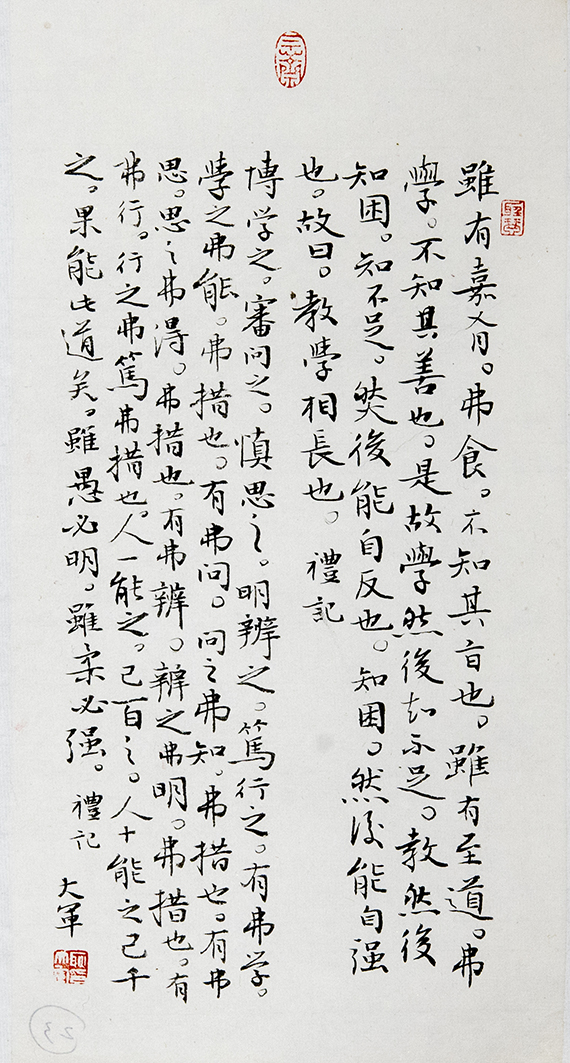 雖有嘉肴。弗食。不知其旨也。雖有至道。弗
學。不知其善也。是故學然後知不足。教然後
知困。知不足。然後能自反也。知困。然後能自强
也。故曰。教學相長也。禮記
博学之。審问之。慎思之。明辨之。篤行之。有弗学。
學之弗能。弗措也。有弗问。问之弗知。弗措也。有弗
思。思之弗得。弗措也。有弗辨。辨之弗明。弗措也。有
弗行。行之弗篤弗措也。人一能之。己百之。人十能之己千
之。果能此道矣。雖愚必明。雖柔必强。禮記
大軍
23